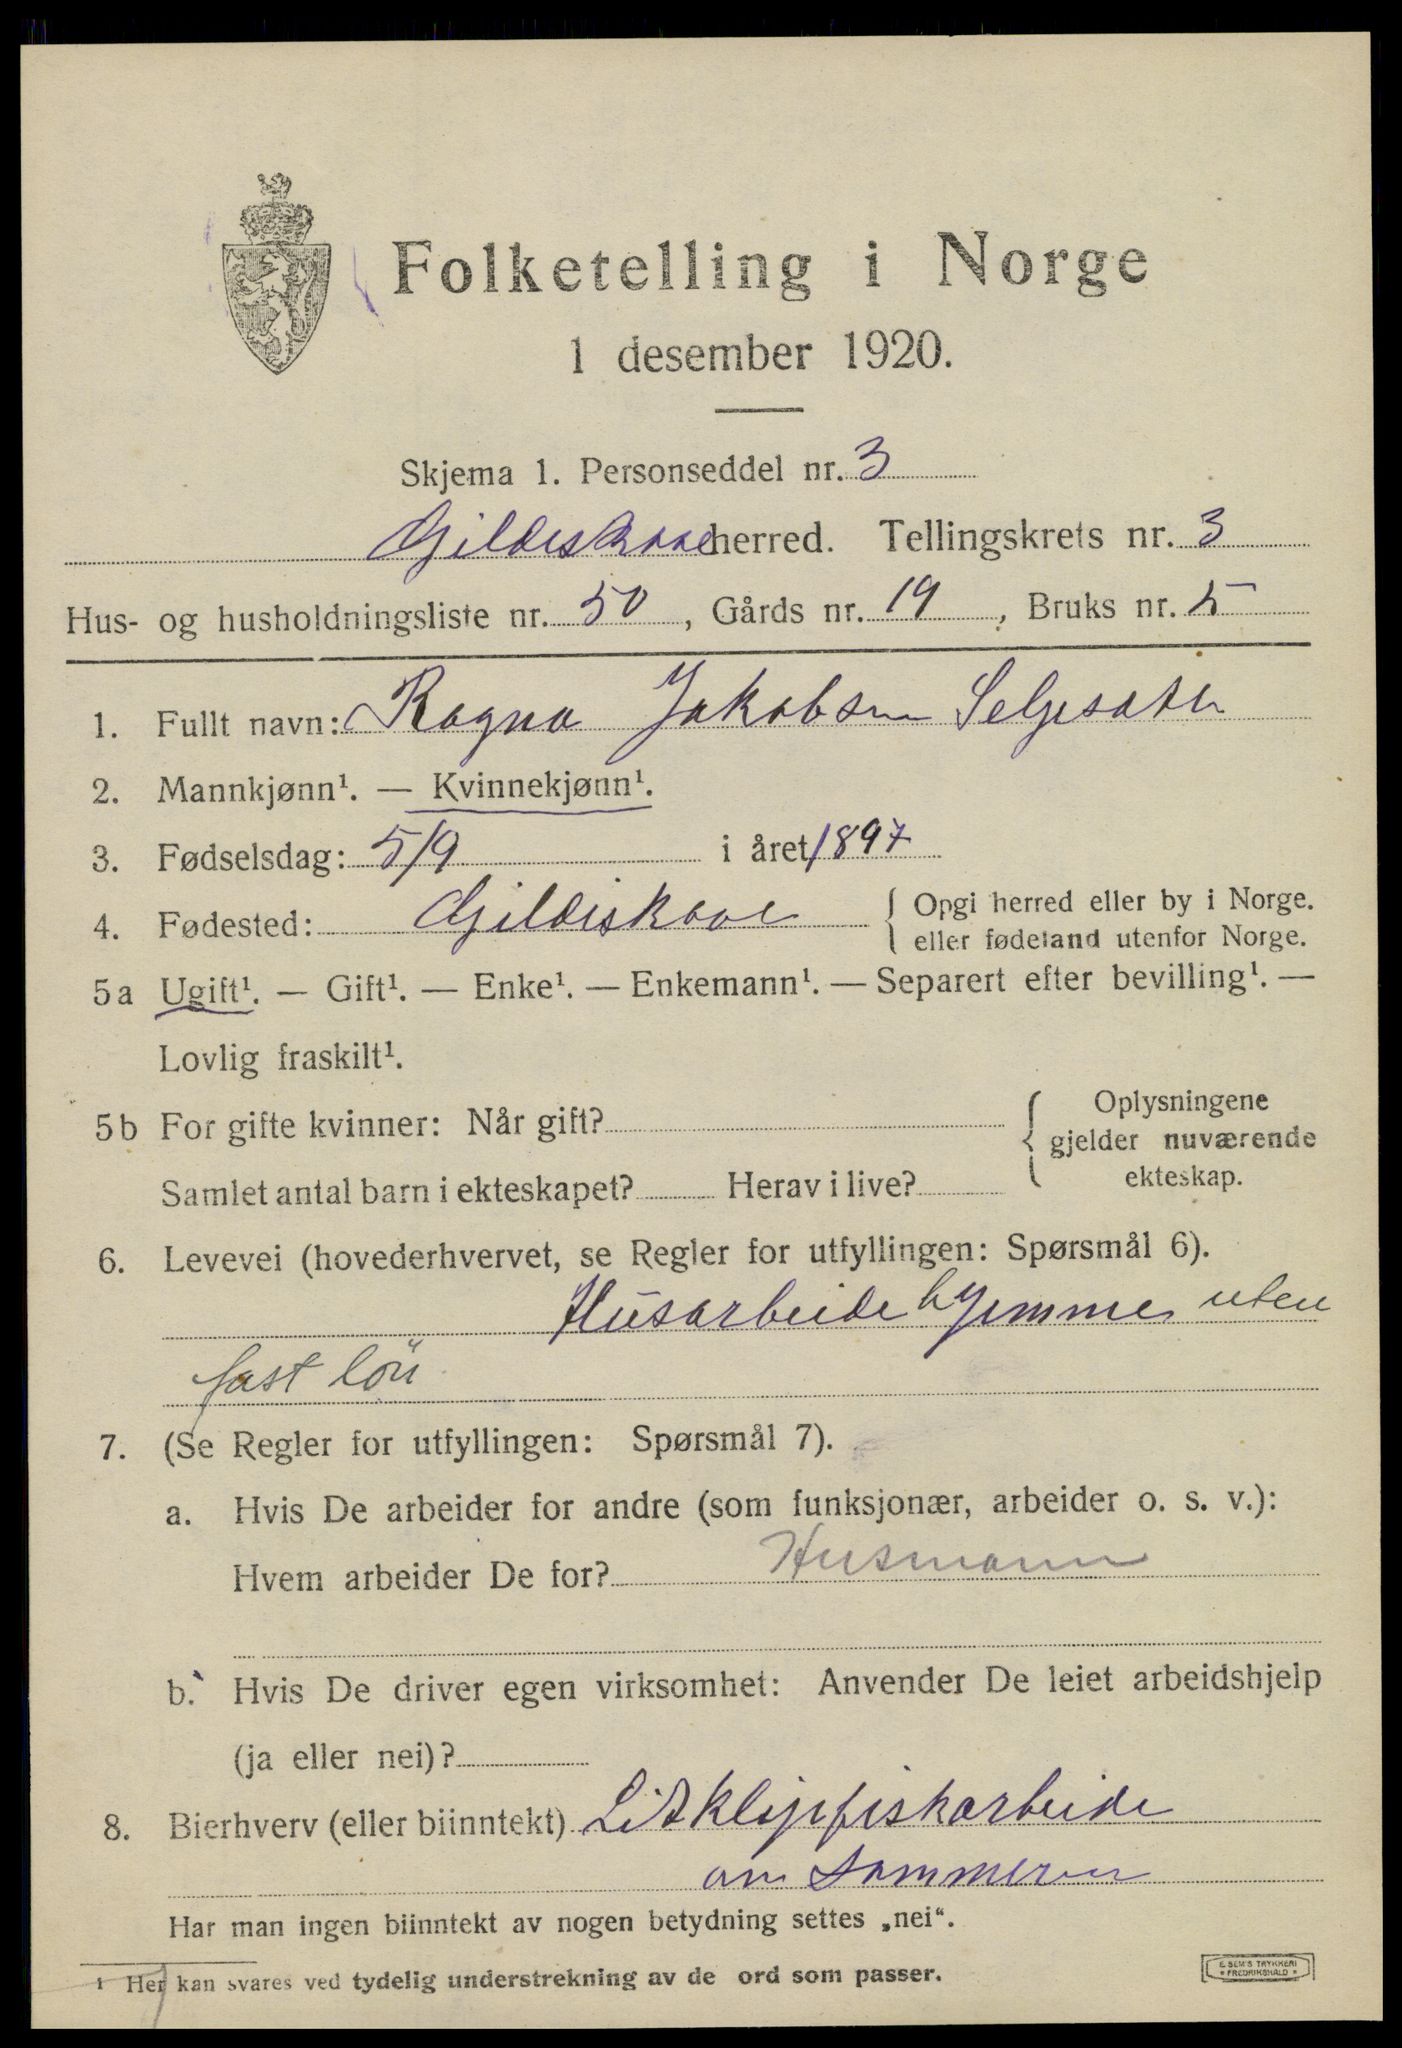 Folketelling i Norge
1 desember 1920.
Skjema 1. Personseddel nr. 3
Gildeskaal herred. Tellingskrets nr. 3
Hus- og husholdningsliste nr. 50, Gårds nr. 19, Bruks nr. 5
1. Fullt navn: Ragna Jakobsen Selgesæter
2. Mannkjønn¹. — Kvinnekjønn¹.
3. Fødselsdag: 5/9 i året 1897
4. Fødested: Gildeskaal { Opgi herred eller by i Norge.
eller fødeland utenfor Norge.
5a Ugift¹. — Gift¹. — Enke¹. — Enkemann¹. — Separert efter bevilling¹. —
Lovlig fraskilt¹.
5b For gifte kvinner: Når gift? { Oplysningene
gjelder nuværende
ekteskap.
Samlet antal barn i ekteskapet? Herav i live?
6. Levevei (hovederhvervet, se Regler for utfyllingen: Spørsmål 6).
Husarbeide hjemme uten
fast lön
7. (Se Regler for utfyllingen: Spørsmål 7).
a. Hvis De arbeider for andre (som funksjonær, arbeider o. s. v.):
Hvem arbeider De for? Husmann
b. Hvis De driver egen virksomhet: Anvender De leiet arbeidshjelp
(ja eller nei)?
8. Bierhverv (eller biinntekt) Litklipfiskarbeide
om sommeren
Har man ingen biinntekt av nogen betydning settes „nei“.
¹ Her kan svares ved tydelig understrekning av de ord som passer.
E. SEM'S TRYKKERI
• FREDRIKSHALD •